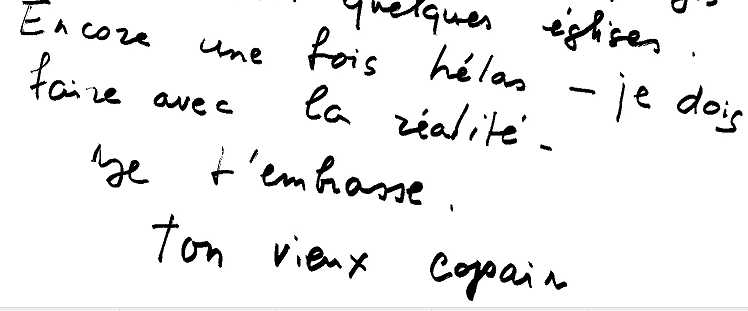 quelques églises.
Encore une fois hélas – je dois
faire avec la réalité.
Je t'embrasse.
ton vieux copain